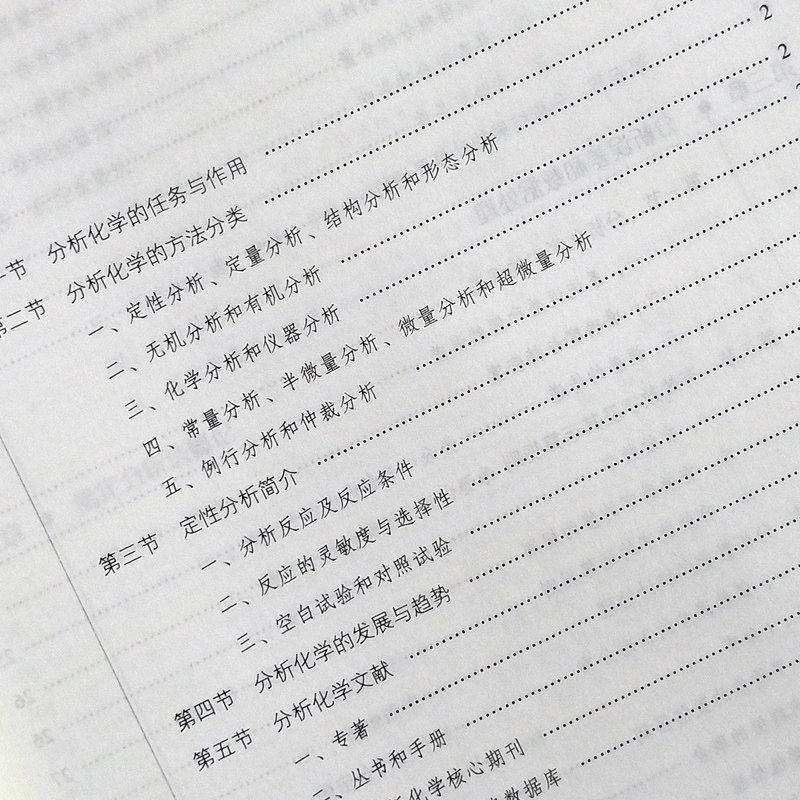 一节 分析化学的任务与作用 2
第二节 分析化学的方法分类 2
一、定性分析、定量分析、结构分析和形态分析
二、无机分析和有机分析
三、化学分析和仪器分析
四、常量分析、半微量分析、微量分析和超微量分析
五、例行分析和仲裁分析
第三节 定性分析简介
一、分析反应及反应条件
二、反应的灵敏度与选择性
三、空白试验和对照试验
第四节 分析化学的发展与趋势
第五节 分析化学文献
一、专著
二、丛书和手册
析化学核心期刊
数据库